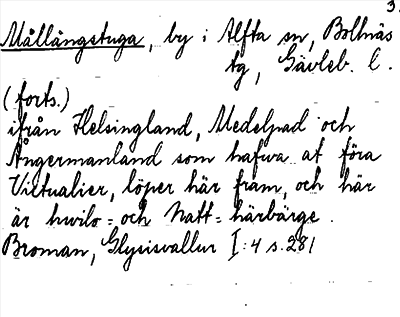 3.
Mållångstuga, by i Alfta sn, Bollnäs
tg, Gävleb. l.
(forts.)
ifrån Helsingland, Medelpad och
Ångermanland som hafwa at föra
Victualier, löper här fram, och här
är hwilo= och Natt= härbärge.
Broman, Glysisvallur I:4 s. 281